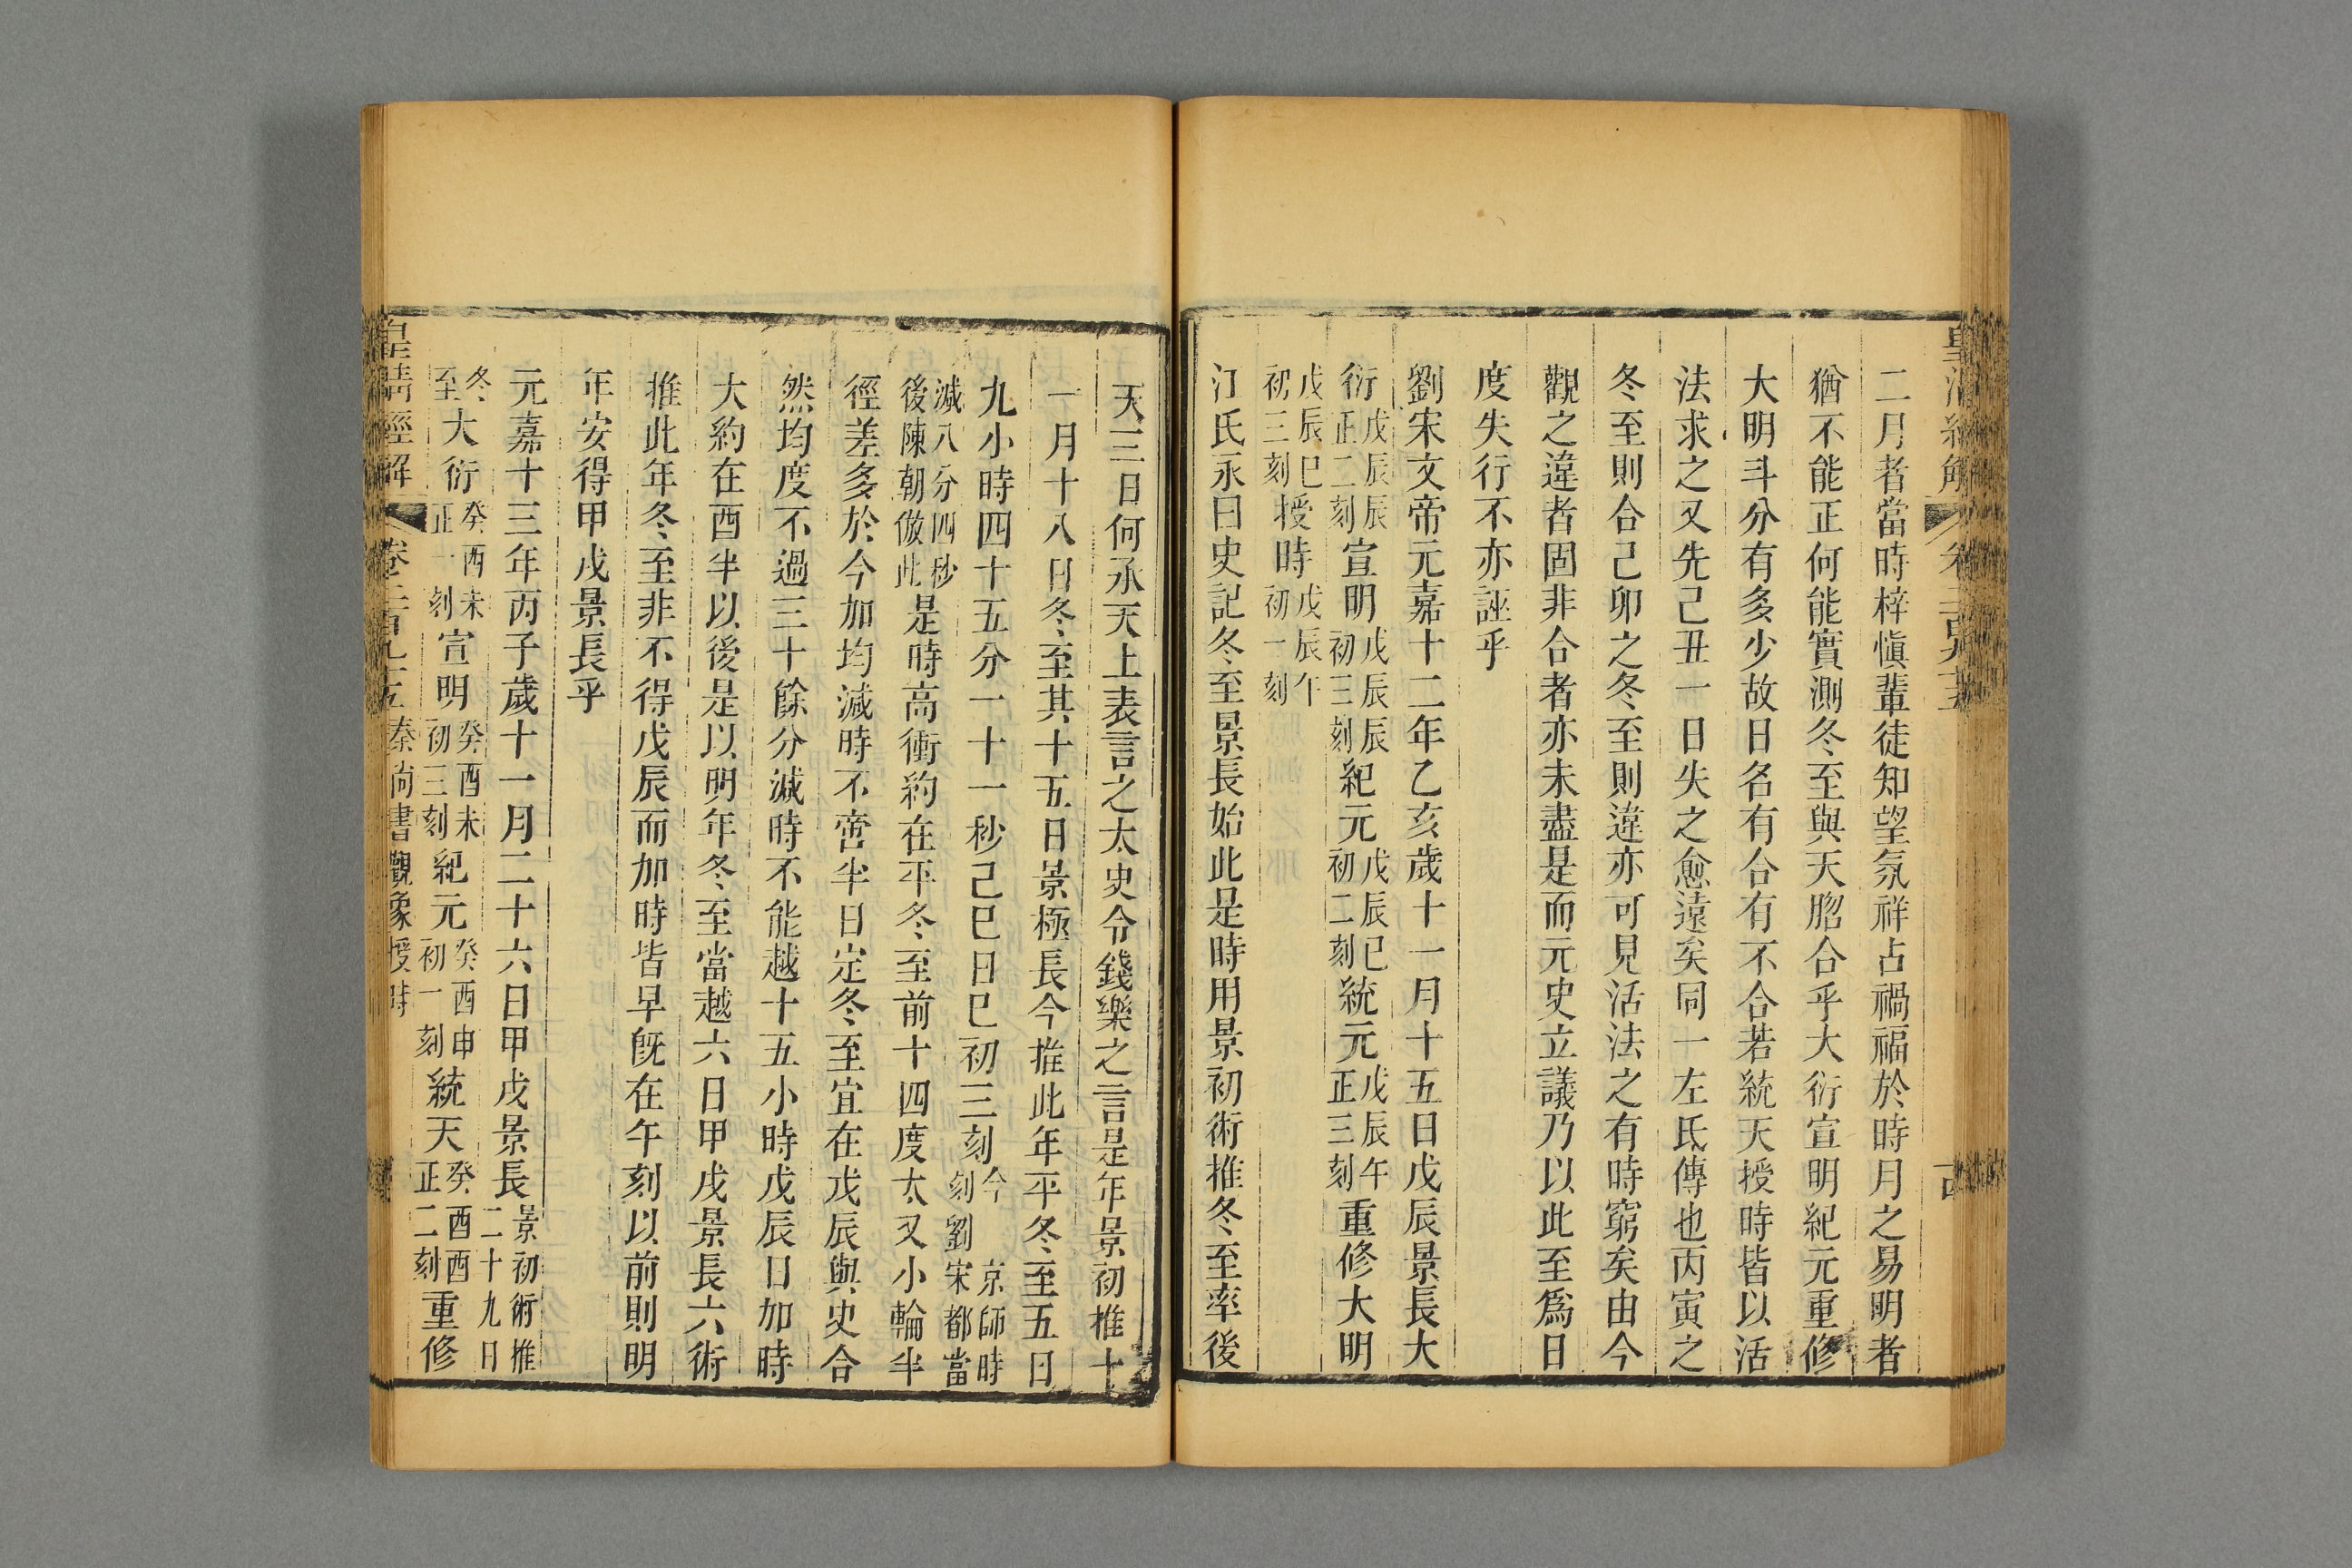 二月者當時梓愼輩徒知望氛祥占禍福於時月之易明者
猶不能正何能實測冬至與天脗合乎大衍宣明紀元重修
大明斗分有多少故日名有合有不合若統天授時皆以活
法求之又先己丑一日失之愈遠矣同一左氏傳也丙寅之
冬至則合己卯之冬至則違亦可見活法之有時窮矣由今
觀之違者固非合者亦未盡是而元史立議乃以此至爲日
度失行不亦誣乎
劉宋文帝元嘉十二年乙亥歲十一月十五日戊辰景長大
衍戊辰辰正二刻宣明戊辰辰初三刻紀元戊辰巳初二刻統元戊辰午正三刻重修大明
戊辰巳初三刻授時戊辰午初一刻
江氏永曰史記冬至景長始此是時用景初術推冬至率後
天三日何承天上表言之太史令錢樂之言是年景初推十
一月十八日冬至其十五日景極長今推此年平冬至五日
九小時四十五分一十一秒己巳日巳初三刻今京師時刻劉宋都當
減八分四秒後陳朝倣此是時高衝約在平冬至前十四度太又小輪半
徑差多於今加均減時不啻半日定冬至宜在戊辰與史合
然均度不過三十餘分減時不能越十五小時戊辰日加時
大約在酉半以後是以明年冬至當越六日甲戌景長六術
推此年冬至非不得戊辰而加時皆早旣在午刻以前則明
年安得甲戌景長乎
元嘉十三年丙子歲十一月二十六日甲戌景長景初術推二十九日
冬至大衍癸酉未正一刻宣明癸酉未初三刻紀元癸酉申初一刻統天癸酉酉正二刻重修
皇淸經解 卷二百九十五 秦尚書觀象授時